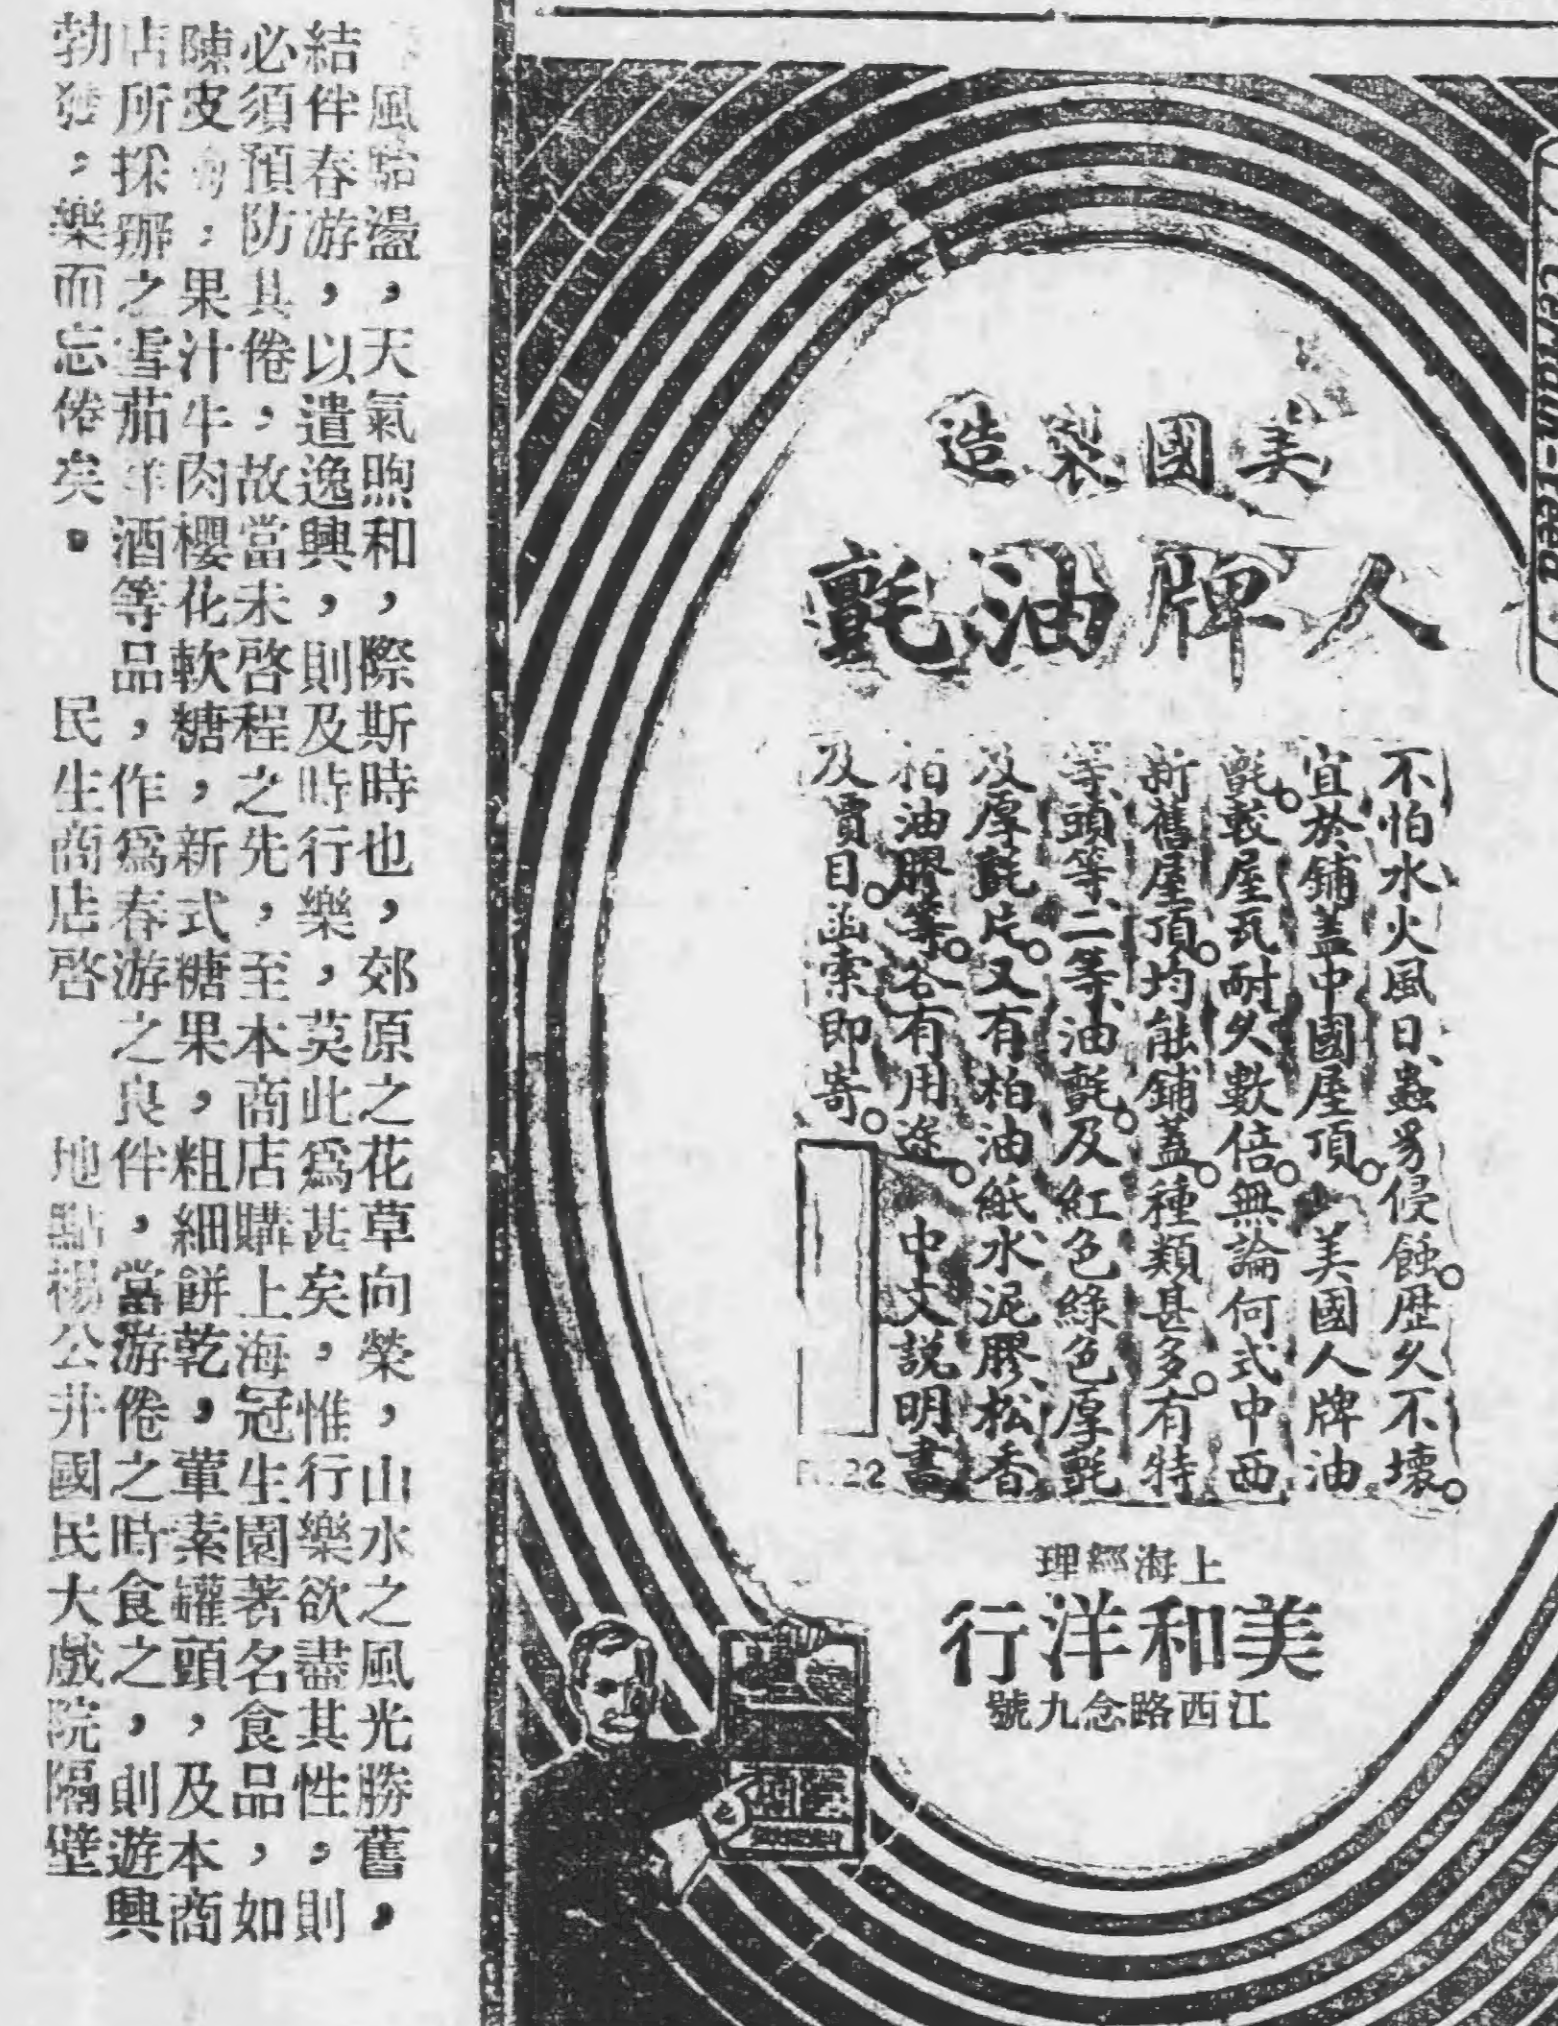 Certain-teed
美國製造
人牌油氈
不怕水火風日、蟲豸侵蝕。歷久不壞。
宜於鋪蓋中國屋頂。美國人牌油
氈。較屋瓦耐久數倍。無論何式中西
新舊屋頂。均能鋪蓋。種類甚多。有特
等、頭等、二等、油氈。及紅色綠色厚氈
及厚氈片。又有柏油紙水泥膠、松香
柏油膠等。各有用途。中文説明書
及價目。函索即寄。
22
上海經理
美和洋行
江西路念九號
風駘盪,天氣煦和,際斯時也,郊原之花草向榮,山水之風光勝舊,
結伴春游,以遣逸興,則及時行樂,莫此爲甚矣,惟行樂欲盡其性,則
必須預防其倦,故當未啓程之先,至本商店購上海冠生園著名食品,如
陳皮,果汁牛肉櫻花軟糖,新式糖果,粗細餅乾,葷素罐頭,及本商
店所採辦之雪茄洋酒等品,作爲春游之良伴,當游倦之時食之,則遊興
勃發,樂而忘倦矣。 民生商店啓 地點楊公井國民大戲院隔壁